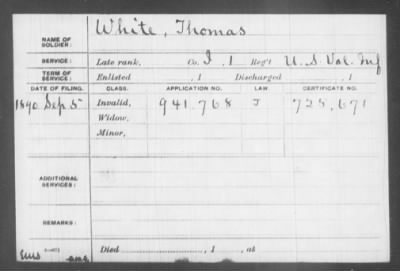 NAME OF SOLDIER: White, Thomas
SERVICE: Late rank, Co. I, 1 Reg't U.S. Vol. Inf
TERM OF SERVICE: Enlisted , 1 Discharged , 1
DATE OF FILING. CLASS. APPLICATION NO. LAW. CERTIFICATE NO.
1890 Sep 5 Invalid, 941,768 J 725,671
Widow,
Minor,
ADDITIONAL SERVICES:
REMARKS:
Died , 1 , at